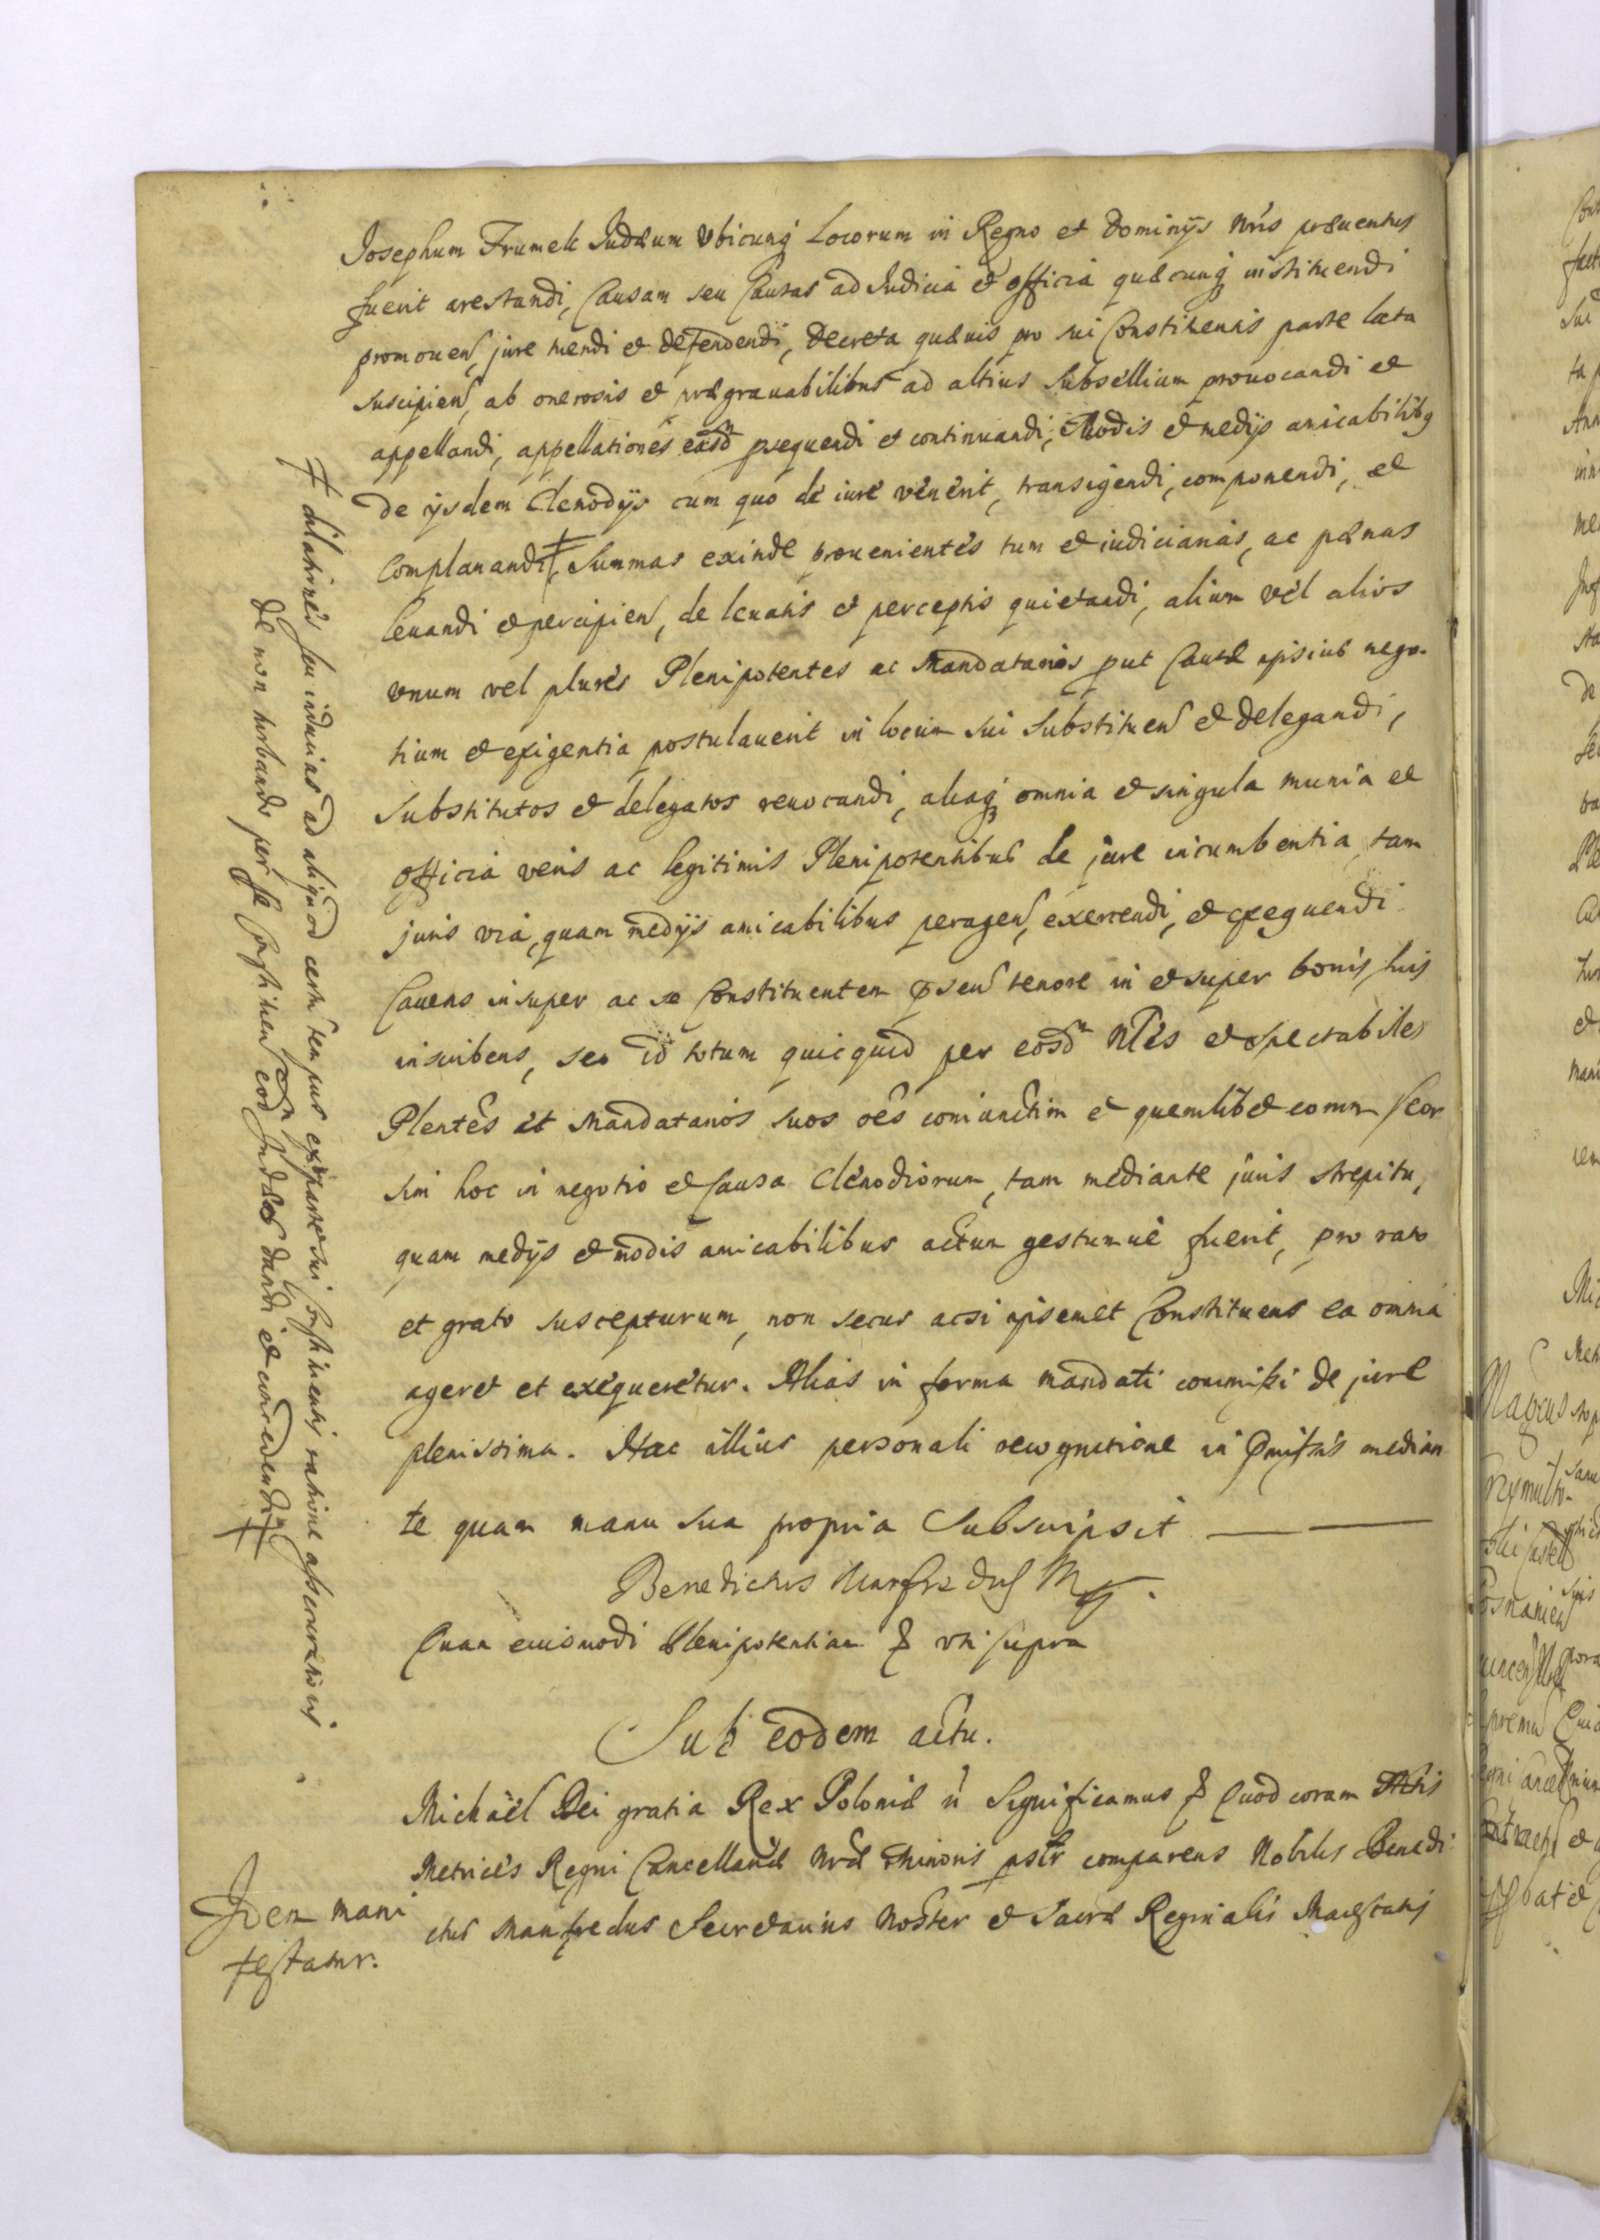 Josephum Frumek Judæum Vbicunq Locorum in Regno et Dominÿs Nris præuentus
fuerit arestandi, Causam seu Causas ad Judicia et officia quæcunq instituendi
promouen, jure tuendi et defendendi, Decreta quæuis pro sui Constituentis parte lata
suscipien, ab onerosis et prægrauabilibus ad altius Subsellium prouocandi et
appellandi, appellationes easd prsequendi et continuandi, Modis et medÿs amicabilibq
de ÿsdem Clenodÿs cum quo de iure venerit, transigendi, componendi, et
Complanandi ‡, Summas exinde prouenientes tum et iudiciarias, ac pænas
leuandi et percipien, de leuatis et perceptis quietandi, alium vel alios
vnum vel plures Plenipotentes ac Mandatarios put Causæ ipsius nego-
tium et exigentia postulauerit in locum sui Substituen et delegandi,
Substitutos et delegatos reuocandi, aliaq omnia et singula munia et
officia veris ac legitimis Plenipotentibus de jure incumbentia, tam
juris via, quam medÿs amicabilibus peragen, exercendi, et exequendi
Cauens insuper ac se Constituentem psen tenore in et super bonis suis
inscribens, seo id totum quicquid per eosd Nles et spectabiles
Plentes et Mandatarios suos oes coniunctim et quemlibet eorum seor
sim hoc in negotio et Causa Clenodiorum, tam mediante juris strepitu,
quam medÿs et modis amicabilibus actum gestumue fuerit, pro rato
et grato suscepturum, non secus acsi ipsemet Constituens ea omnia
ageret et exequeretur. Alias in forma mandati commissi de jure
plenissima. Hac illius personali recognitione in Pmissis median
te quam manu sua propria Subscripsit
Benedictus Manfredus
Quam eiusmodi Plenipotentiam vti supra
Sub eodem actu.
Michaël Dei gratia Rex Poloniæ Significamus Quod coram Actis
Metrices Regni Cancellariæ Nræ Minoris pslr comparens Nobilis Benedi
ctus Manfredus Secretarius Noster et Sacræ Reginalis Maiestatis
Idem mani
festatur.
‡ dilationes seu inducias ad aliquod certu tempus ex parte sui Constituentis ratione asseurationis
de non turbando per se Constituen eod Judæo dandi et concedendi ‡